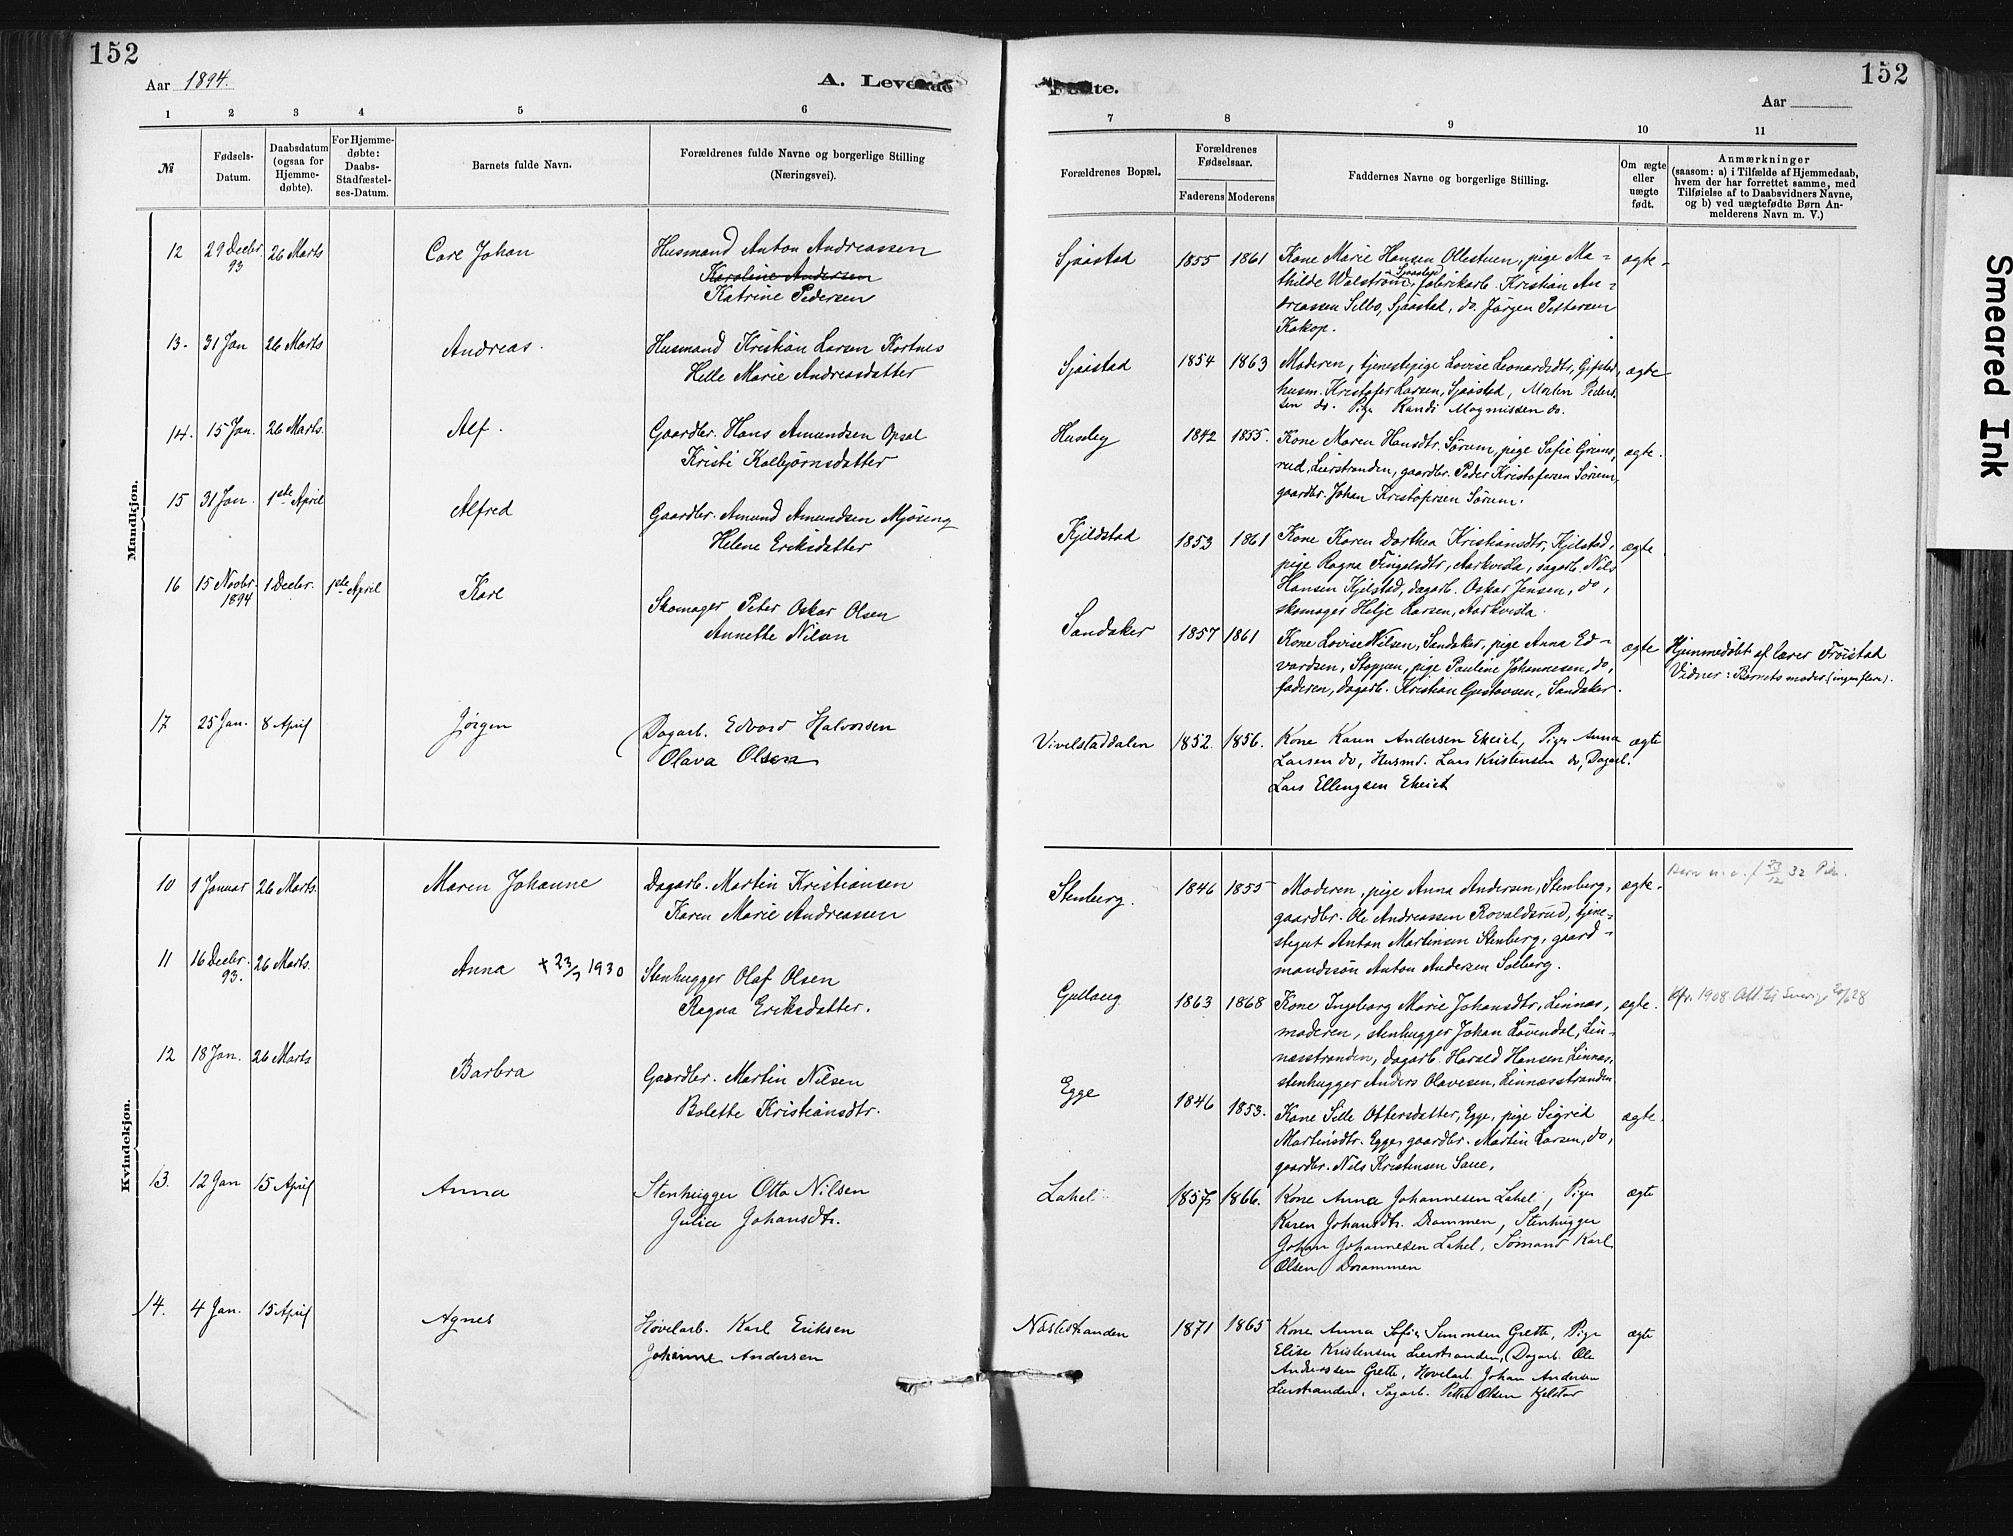 152
Aar 1894.
A. Levende
1 2 3 4 5 6
№
Fødsels-
Datum.
Daabsdatum
(ogsaa for
Hjemme-
døbte).
For Hjemme-
døbte:
Daabs-
Stadfæstel-
ses-Datum.
Barnets fulde Navn.
Forældrenes fulde Navne og borgerlige Stilling
(Næringsvei).
Mandkjøn.
12 29 Decbr. 93 26 Marts Carl Johan Husmand Anton Andreassen
Karoline Andersen
Katrine Pedersen
13. 31 Jan 26 Marts Andreas. Husmand Kristian Larsen Kortnes
Helle Marie Andreasdatter
14. 15 Jan. 26 Marts. Alf. Gaardbr. Hans Amundsen Opsal
Kristi Kolbjørnsdatter
15 31 Jan. 1ste April Alfred Gaardbr. Amund Amundsen Mjøseng
Helene Eriksdatter
16 15 Novbr. 1894 1 Decbr. 1ste April Karl Skomager Peter Oskar Olsen
Annette Nilsen
17 25 Jan. 8 April Jørgen Dagarb. Edvard Halvorsen
Olava Olsen
Kvindekjøn.
10 1 Januar 26 Marts. Maren Johanne Dagarb. Martin Kristiansen
Karen Marie Andreassen
11 16 Decbr. 93. 26 Marts. Anna + 23/7 1930 Stenhugger Olaf Olsen
Ragna Eriksdatter.
12 18 Jan. 26 Marts Barbra Gaardbr. Martin Nilsen
Bolette Kristiansdtr.
13. 12 Jan 15 April Anna Stenhugger Otto Nilsen
Julie Johansdtr.
14. 4 Jan. 15 April Agnes Høvelarb. Karl Eriksen
Johanne Andersen
152
Fødte.
Aar
7 8 9 10 11
Forældrenes Bopæl.
Forældrenes
Fødselsaar.
Faderens Moderens
Faddernes Navne og borgerlige Stilling.
Om ægte
eller
uægte
født.
Anmærkninger
(saasom: a) i Tilfælde af Hjemmedaab,
hvem der har forrettet samme, med
Tilføielse af to Daabsvidners Navne,
og b) ved uægtefødte Børn An-
melderens Navn m. V.)
Sjaastad 1855 1861 Kone Marie Hansen Ollestuen, pige Ma- ægte.
thilde Walstrøm, Sjaastad, fabrikarb. Kristian An-
dreassen Selbo, Sjaastad, do. Jørgen Pettersen
Kokop.
Sjaastad 1854 1863 Moderen, tjenestepige Lovise Leonardsdtr, Gifstad, ægte
husm. Kristofer Larsen, Sjaastad, Morten Peder-
sen do. Pige Randi Magnussen do.
Huseby 1842 1855. Kone Maren Hansdtr. Sørum, pige Sofie Grøns- ægte.
rud, Lierstranden, gaardbr. Peder Kristofersen Sørum,
gaardbr. Johan Kristofersen Sørum.
Kjeldstad 1853 1861 Kone Karen Dorthea Kristiansdtr, Kjelstad, ægte
pige Ragna Fingalsdtr, Aarkvisla, sagarb. Nils
Hansen Kjelstad, dagarb. Oskar Jensen, do,
skomager Helje Larsen, Aarkvisla.
Sandaker 1857 1861 Kone Lovise Nilsen, Sandaker, pige Anna Ed- ægte
vardsen, Stoppen, pige Pauline Johannesen, do,
faderen, dagarb. Kristian Gustavsen, Sandaker.
Hjemmedøbt af lærer Frøistad
Vidner: Barnets moder (ingen flere).
Vivelstaddalen 1852. 1856. Kone Karen Andersen Ekeiet, Pige Anna ægte
Larsen do, Husmd. Lars Kristensen do, Dagarb.
Lars Ellingsen Ekeiet
Stenberg. 1846 1855 Moderen, pige Anna Andersen, Stenberg, ægte.
gaardbr. Ole Andreassen Rovaldsrud, tjene-
stegut Anton Martinsen Stenberg, gaard-
mandssøn Anton Andersen Solberg.
Gullaug 1863 1868 Kone Ingeborg Marie Johansdtr, Linnæs, ægte.
moderen, stenhugger Johan Løvendal, Lin-
næsstranden, dagarb. Harald Hansen Linnæs,
stenhugger Anders Olavesen, Linnæsstranden
Egge 1846 1853. Kone Sille Ottersdatter, Egge, pige Sigrid ægte.
Martinsdtr. Egge, gaardbr. Martin Larsen, do,
gaardbr. Nils Kristensen Saue.
Lahel 1857 1866. Kone Anna Johannesen Lahel, Pige ægte
Karen Johansdtr. Drammen, Stenhugger
Johan Johannesen Lahel, Sømand Karl
Olsen Drammen
Næsbstranden 1871 1865 Kone Anna Sofie Simonsen Grette, Pige ægte
Elise Kristensen Lierstranden, Dagarb. Ole
Anderssen Grette, Høvelarb. Johan Andersen
Lierstranden, Sagarb. Petter Olsen Kjelstad
Smeared Ink